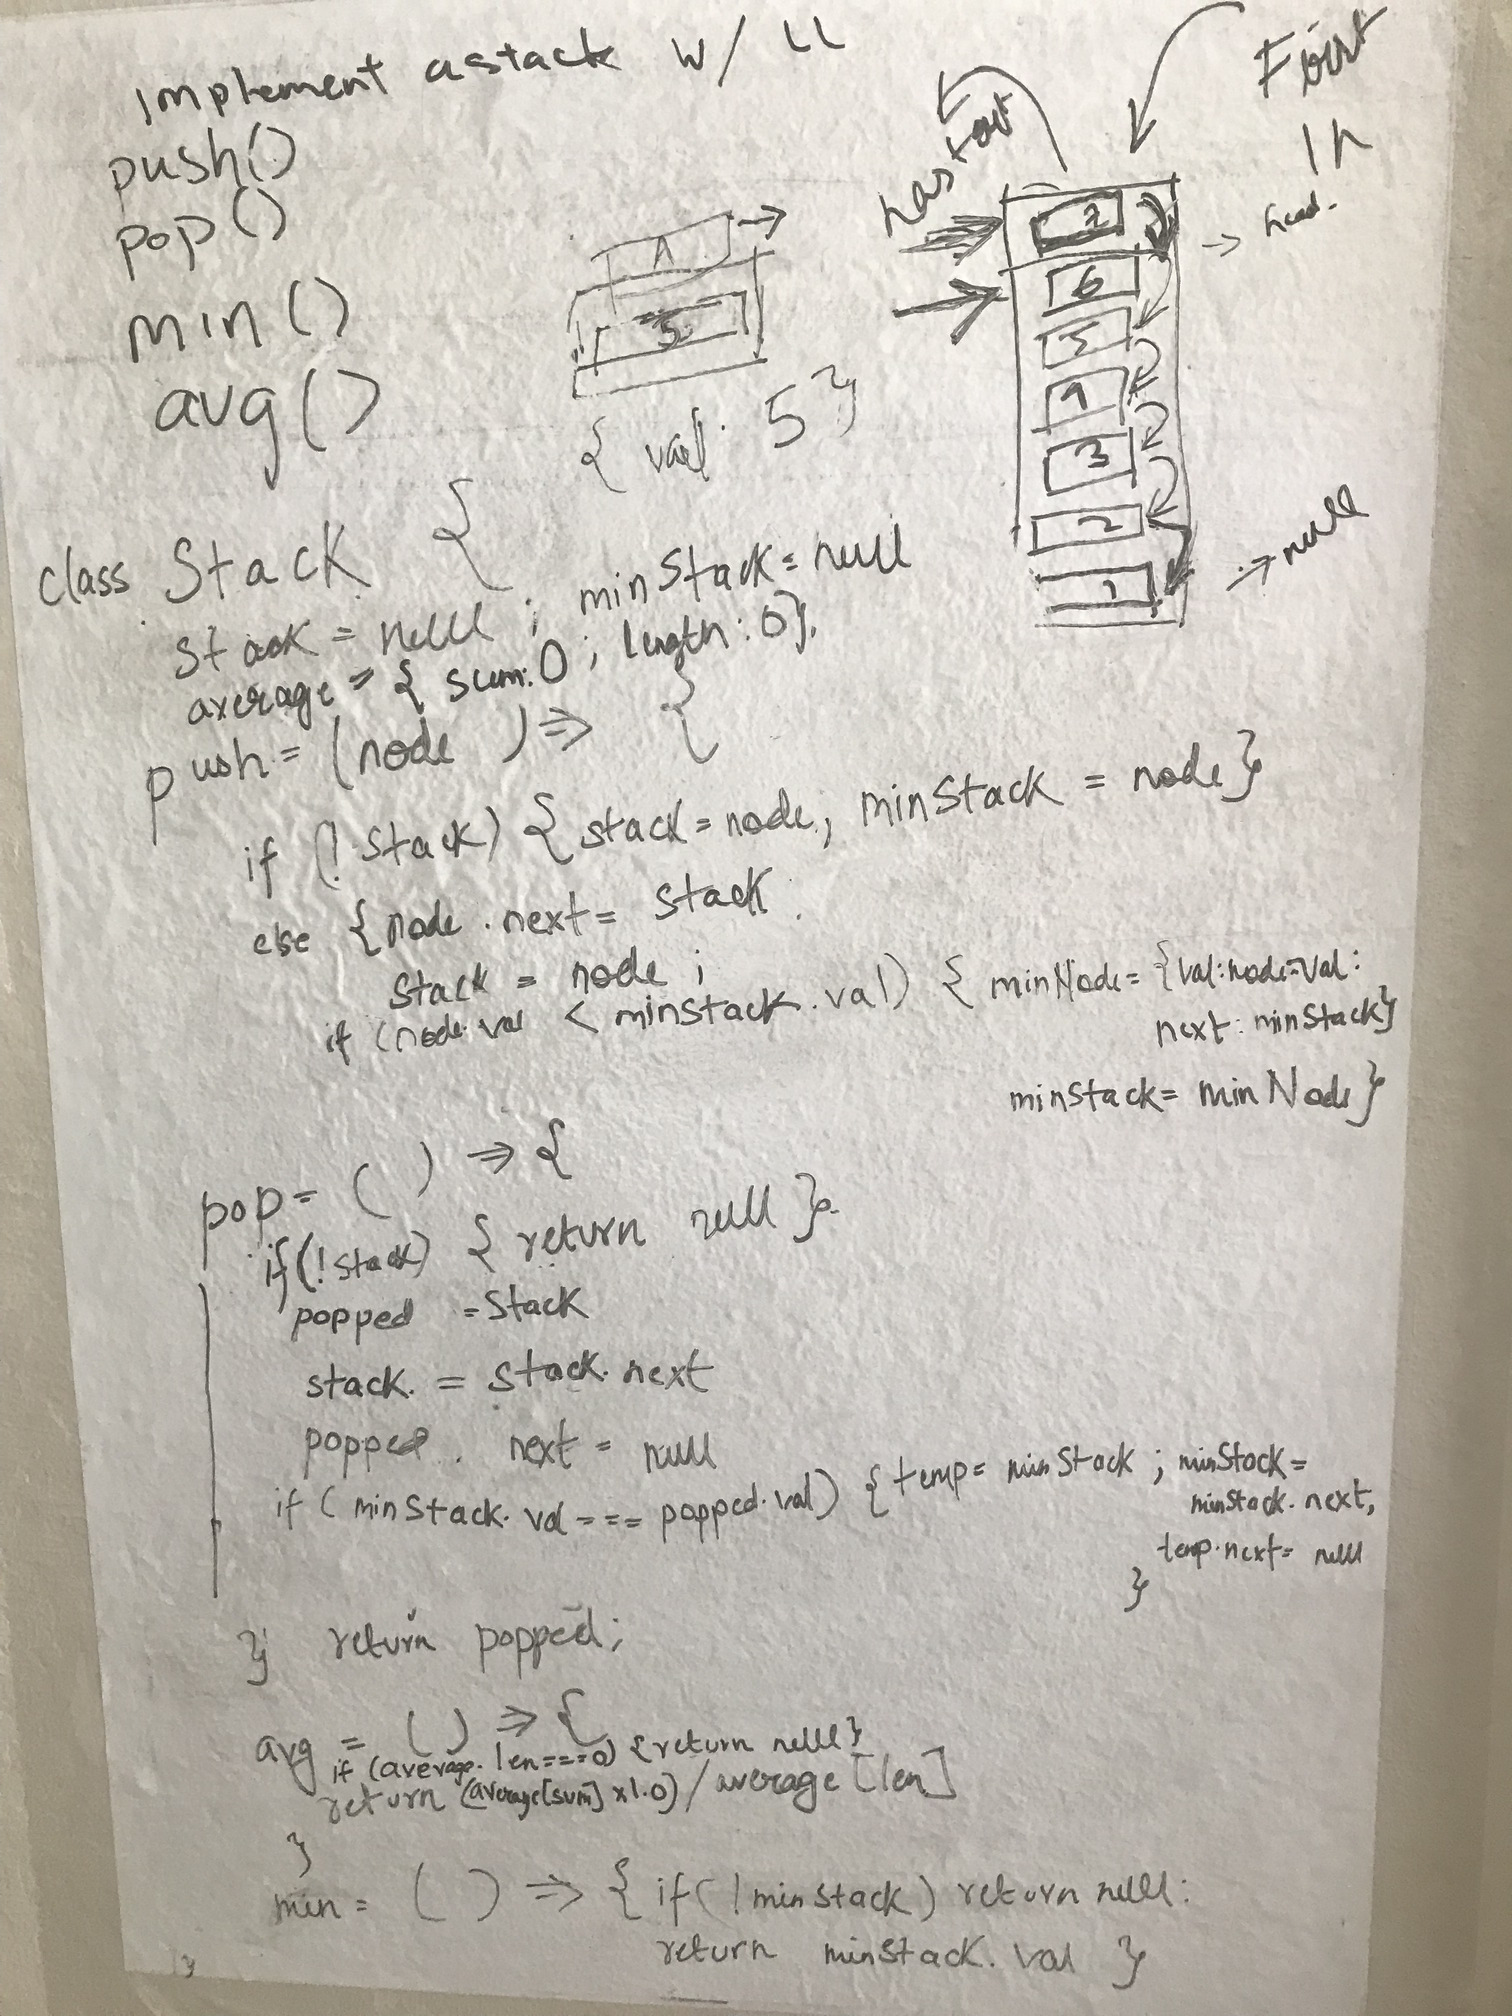 implement a stack w/ LL
push()
pop()
min()
avg()
First
In
out
head.
7
6
5
3
2
1
null
5
{ val: 5}
class Stack {
stack = null ; minStack = null
average = { sum:0 ; length:0},
push = (node ) => {
if (! stack) { stack = node; minStack = node}
else {node . next = stack
stack = node ;
if (node.val < minstack.val) { minNode = {val:node.val:
next : minStack}
minstack = minNode}
pop = ( ) => {
if(! stack) { return null }
popped = stack
stack. = stack. next
popped . next = null
if ( minStack. val === popped.val) { temp = minStack ; minStack =
minStack. next,
temp.next = null
}
} return popped;
avg = ( ) => {
if (average. len===0) {return null}
return (average[sum] x1.0) / average [len]
}
min = ( ) => { if( ! minstack) return null:
return minstack. val }
}